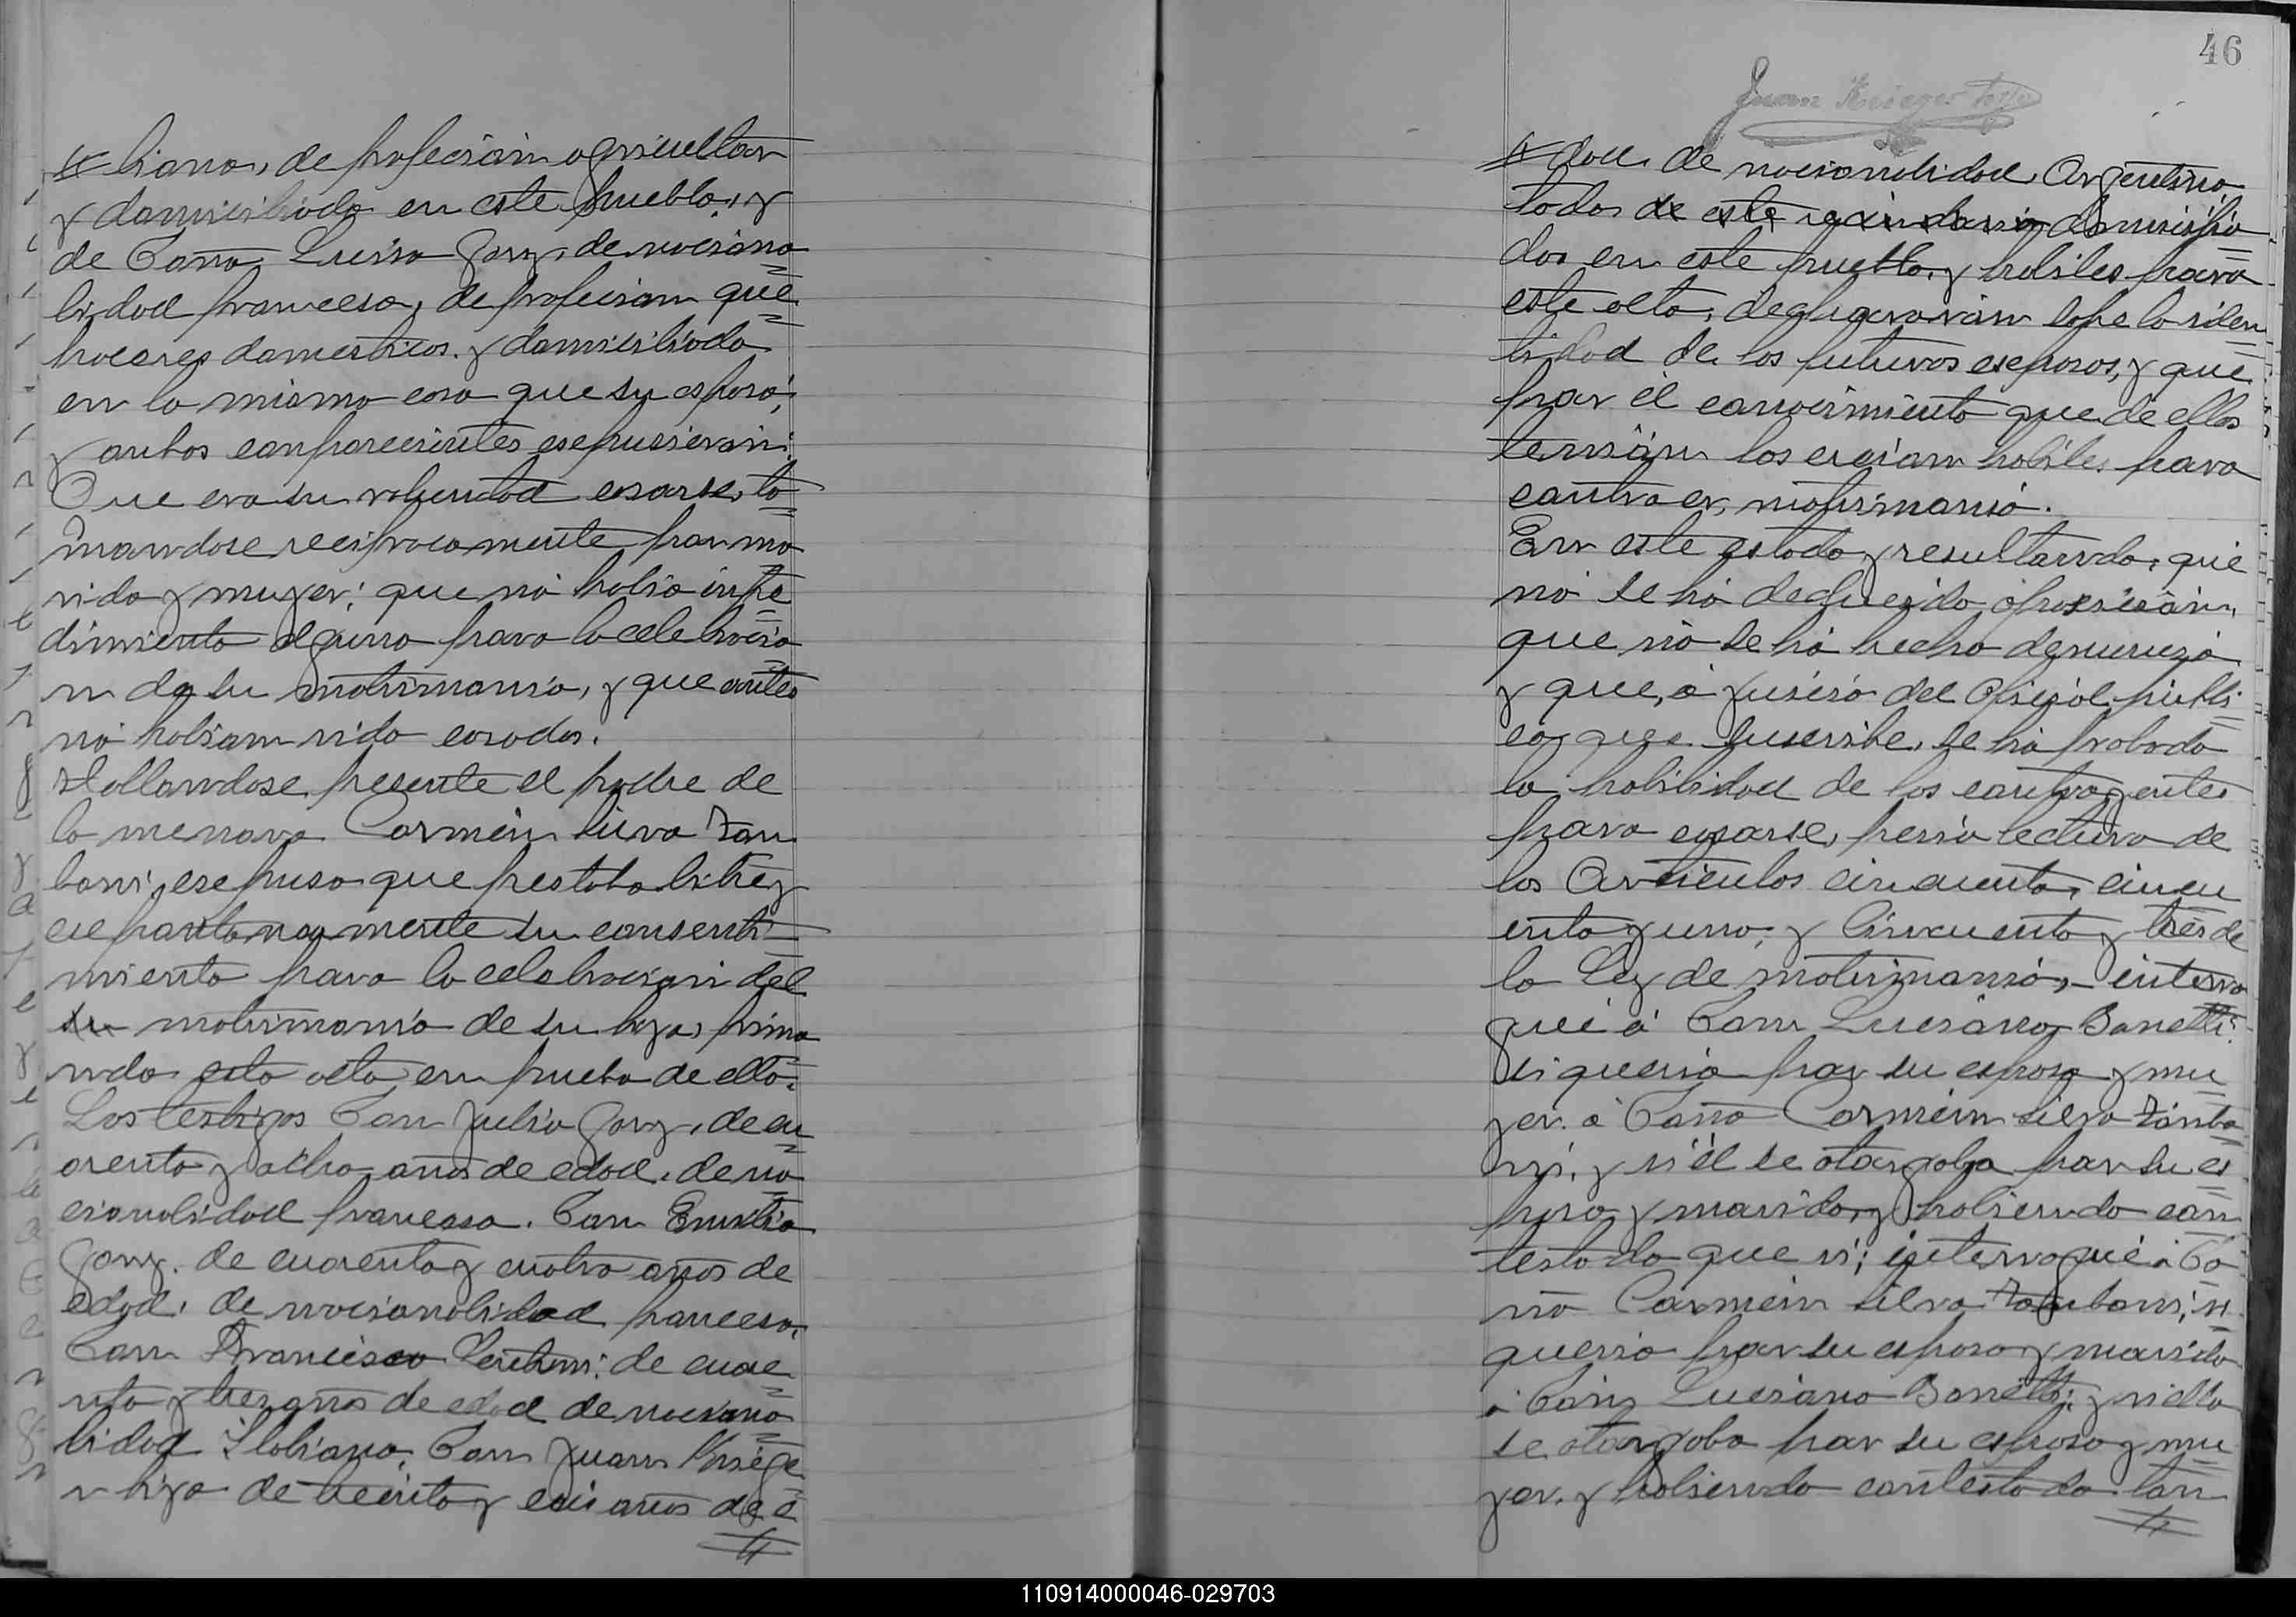 liana, de profesión agricultor
y domiciliado en este pueblo, y
de Doña Luisa Gony, de naciona
lidad francesa, de profesion que
haceres domesticos, y domiciliada
en la misma casa que su esposo;
y ambos comparecientes espusieron:
Que era su voluntad casarse, to
mandose reciprocamente por ma
rido y muger; que no habia impe
dimiento alguno para la celebracio
n de su matrimonio, y que antes
no habian sido casados.
Hallandose presente el padre de
la menora Carmen Silva Zam
boni, espuso que prestaba libre y
espontaneamente su consenti
miento para la celebracion del
su matrimonio de su hija, firma
ndo esta acta en prueba de ello.
Los testigos Don Julio Gony, de cu
arenta y ocho años de edad, de na
cionalidad francesa. Don Emilio
Gony, de cuarenta y cuatro años de
edad, de nacionalidad francesa,
Don Francisco de cuare
nta y tres años de edad de naciona
lidad Italiana, Don Juan Kriege
r hijo de treinta y seis años de e
46
Juan Krieger hijo
dad, de nacionalidad Argentina
todos de este vecindario domicilia
dos en este pueblo, y habiles para
este acto, declararon sobre la iden
tidad de los futuros esposos, y que
por el conocimiento que de ellos
tenian los creian habiles para
contraer matrimonio.
En este estado y resultando, que
no se há deducido oposicion,
que no se há hecho denuncia
y que, á juicio del Oficial públi
co, que suscribe, se há probado
la habilidad de los contrayentes
para casarse, previa lectura de
los Articulos cincuenta, cincu
enta y uno, y Cincuenta y tres de
la Ley de matrimonio, interro
gué á Don Luciano Bonetti
si queria por su esposa y mu
ger á Doña Carmen Silva Zambo
ni, y si él se otorgaba por su es
poso y marido, y habiendo con
testado que si; interrogué á Do
ña Carmen Silva Zamboni, si
queria por su esposo y marido
á Don Luciano Bonetti; y si ella
se otorgaba por su esposa y mu
ger, y habiendo contestado tam
110914000046-029703